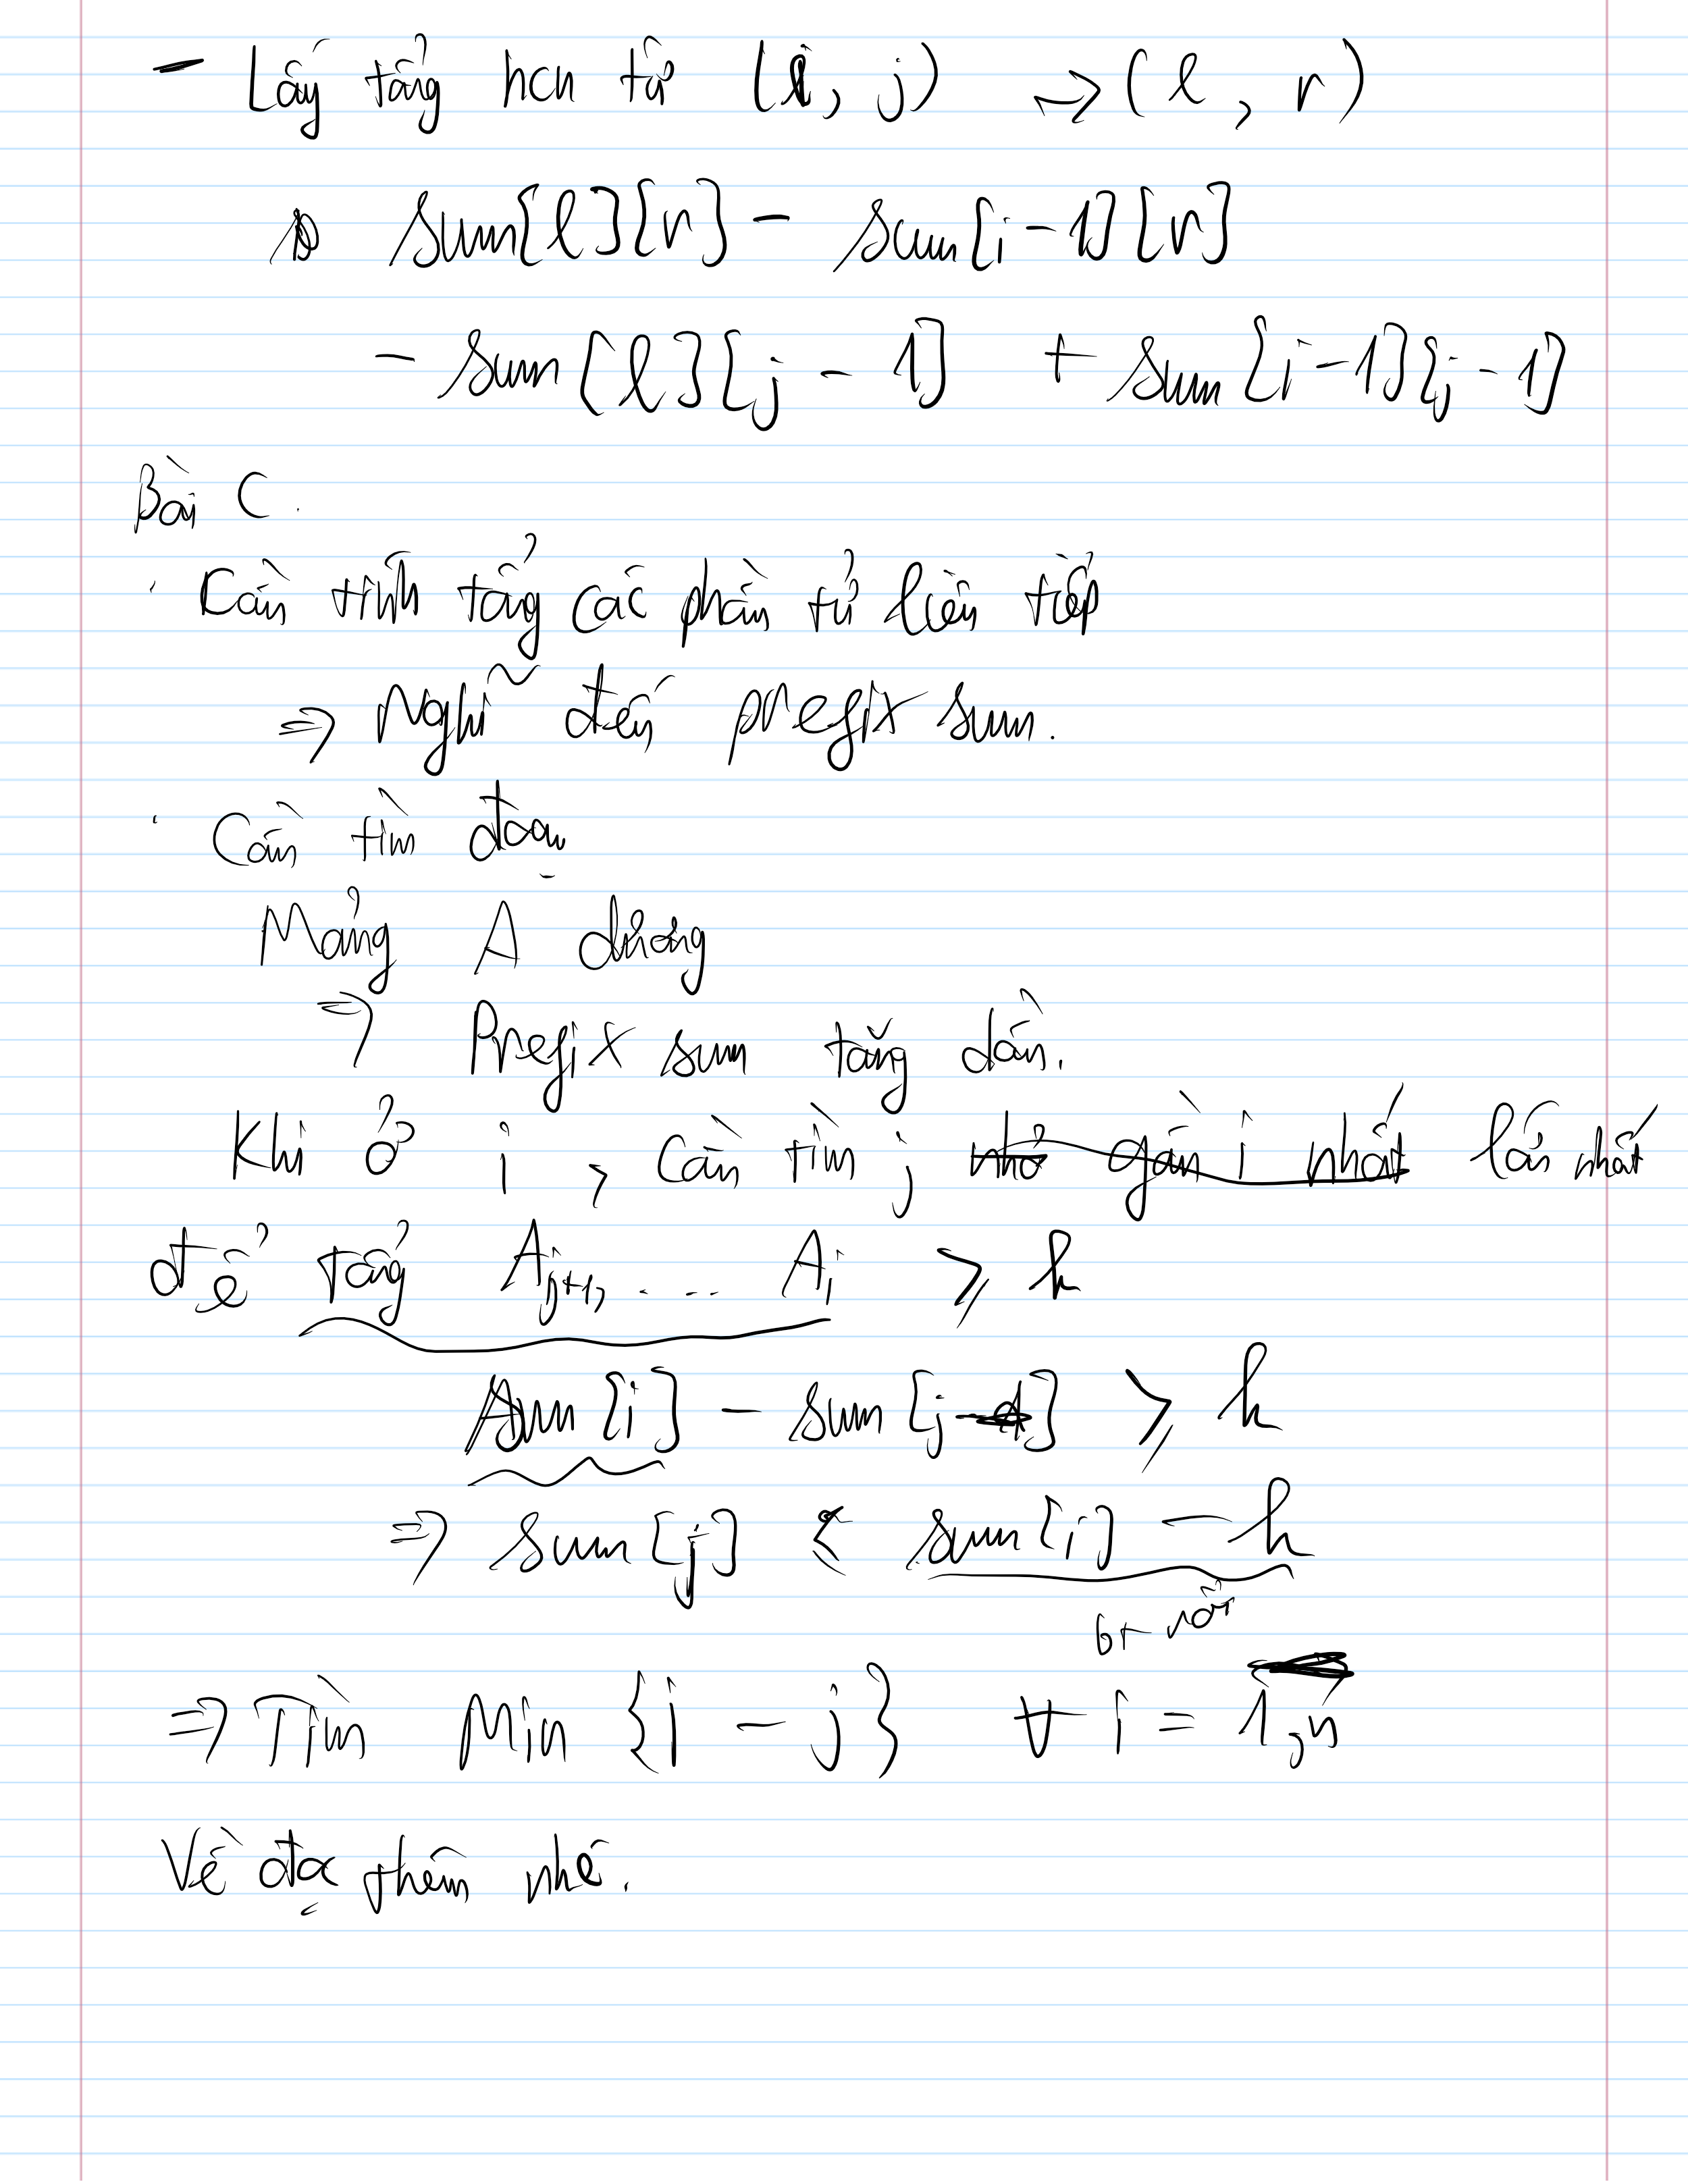 - Lấy tổng hcn từ (i, j) → (l, r)
sum[l][r] - sum[i-1][r]
- sum[l][j-1] + sum[i-1][j-1]
Bài C.
· Cần tính tổng các phần tử liên tiếp
⇒ Nghĩ đến prefix sum.
· Cần tìm đoạn
Mảng A dương
⇒ Prefix sum tăng dần.
Khi ở i, cần tìm j nhỏ gần i nhất lớn nhất
để tổng A_{j+1}, .... A_i ≥ k
sum[i] - sum[j] ≥ k
⇒ sum[j] ≤ sum[i] - k
bt rồi
⇒ Tìm Min {i - j} ∀ i = 1,n
Về đọc thêm nhé.